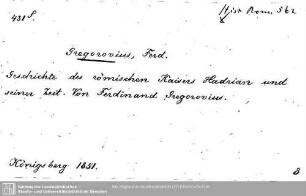 431 S.
Hist. Rom. 562
Gregorovius, Ferd.
Geschichte des römischen Kaisers Hadrian und
seiner Zeit. Von Ferdinand Gregorovius.
Königsberg 1851.
8
Sächsische Landesbibliothek -
Staats- und Universitätsbibliothek Dresden